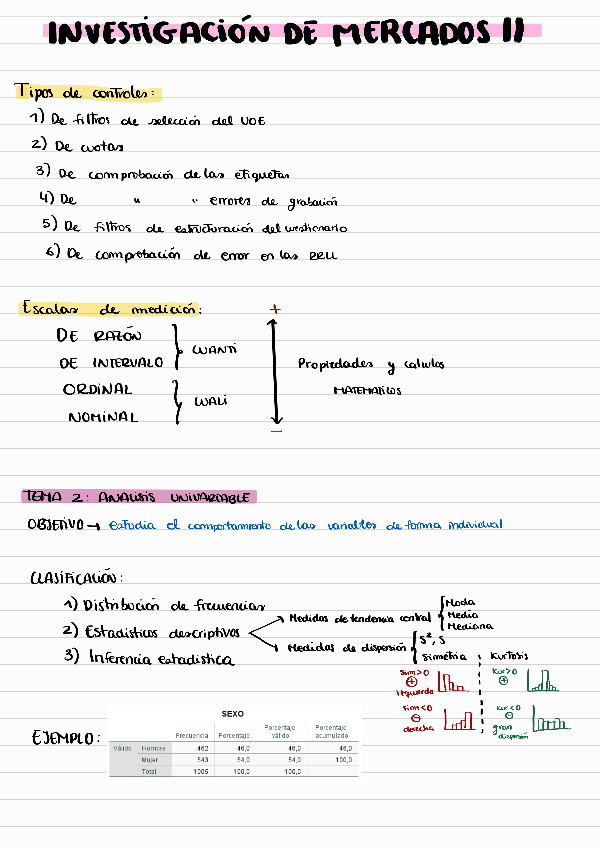 INVESTIGACIÓN DE MERCADOS II
Tipos de controles:
1) De filtros de selección del UOE
2) De cuotas
3) De comprobación de las etiquetas
4) De " " errores de grabación
5) De filtros de estructuración del cuestionario
6) De comprobación de error en las RRLL
Escalas de medición:
+
DE RAZÓN
DE INTERVALO
CUANTI
ORDINAL
NOMINAL
CUALI
Propiedades y calculos
MATEMATICOS
-
TEMA 2: ANALISIS UNIVARIABLE
OBJETIVO → estudia el comportamiento de las variables de forma individual
CLASIFICACIÓN:
1) Distribución de frecuencias
2) Estadisticos descriptivos
3) Inferencia estadistica
Medidas de tendencia central
Moda
Media
Mediana
Medidas de dispersión
S², S
Simetría
Kurtosis
Sim>0
+
izquierda
Sim<0
-
derecha
Kur>0
+
Kur<0
-
gran
dispersión
EJEMPLO:
SEXO
Frecuencia Porcentaje Porcentaje válido Porcentaje acumulado
Válido Hombre 462 46,0 46,0 46,0
Mujer 543 54,0 54,0 100,0
Total 1005 100,0 100,0